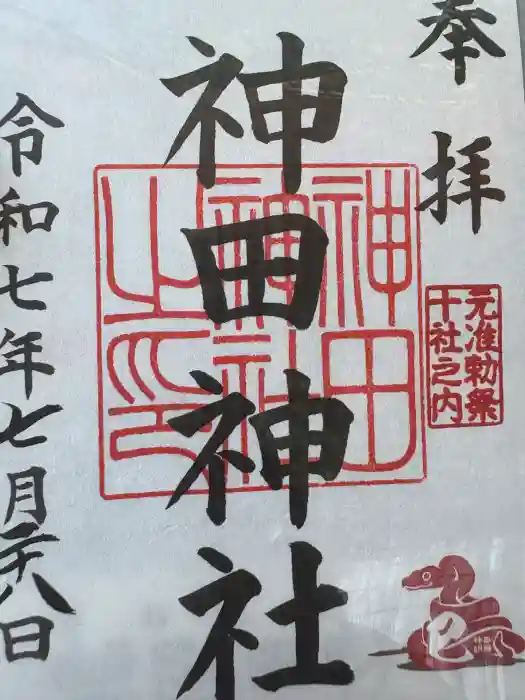 奉拝
元准勅祭
十社之内
神田神社
神田
神社
之印
令和七年七月二十八日
巳